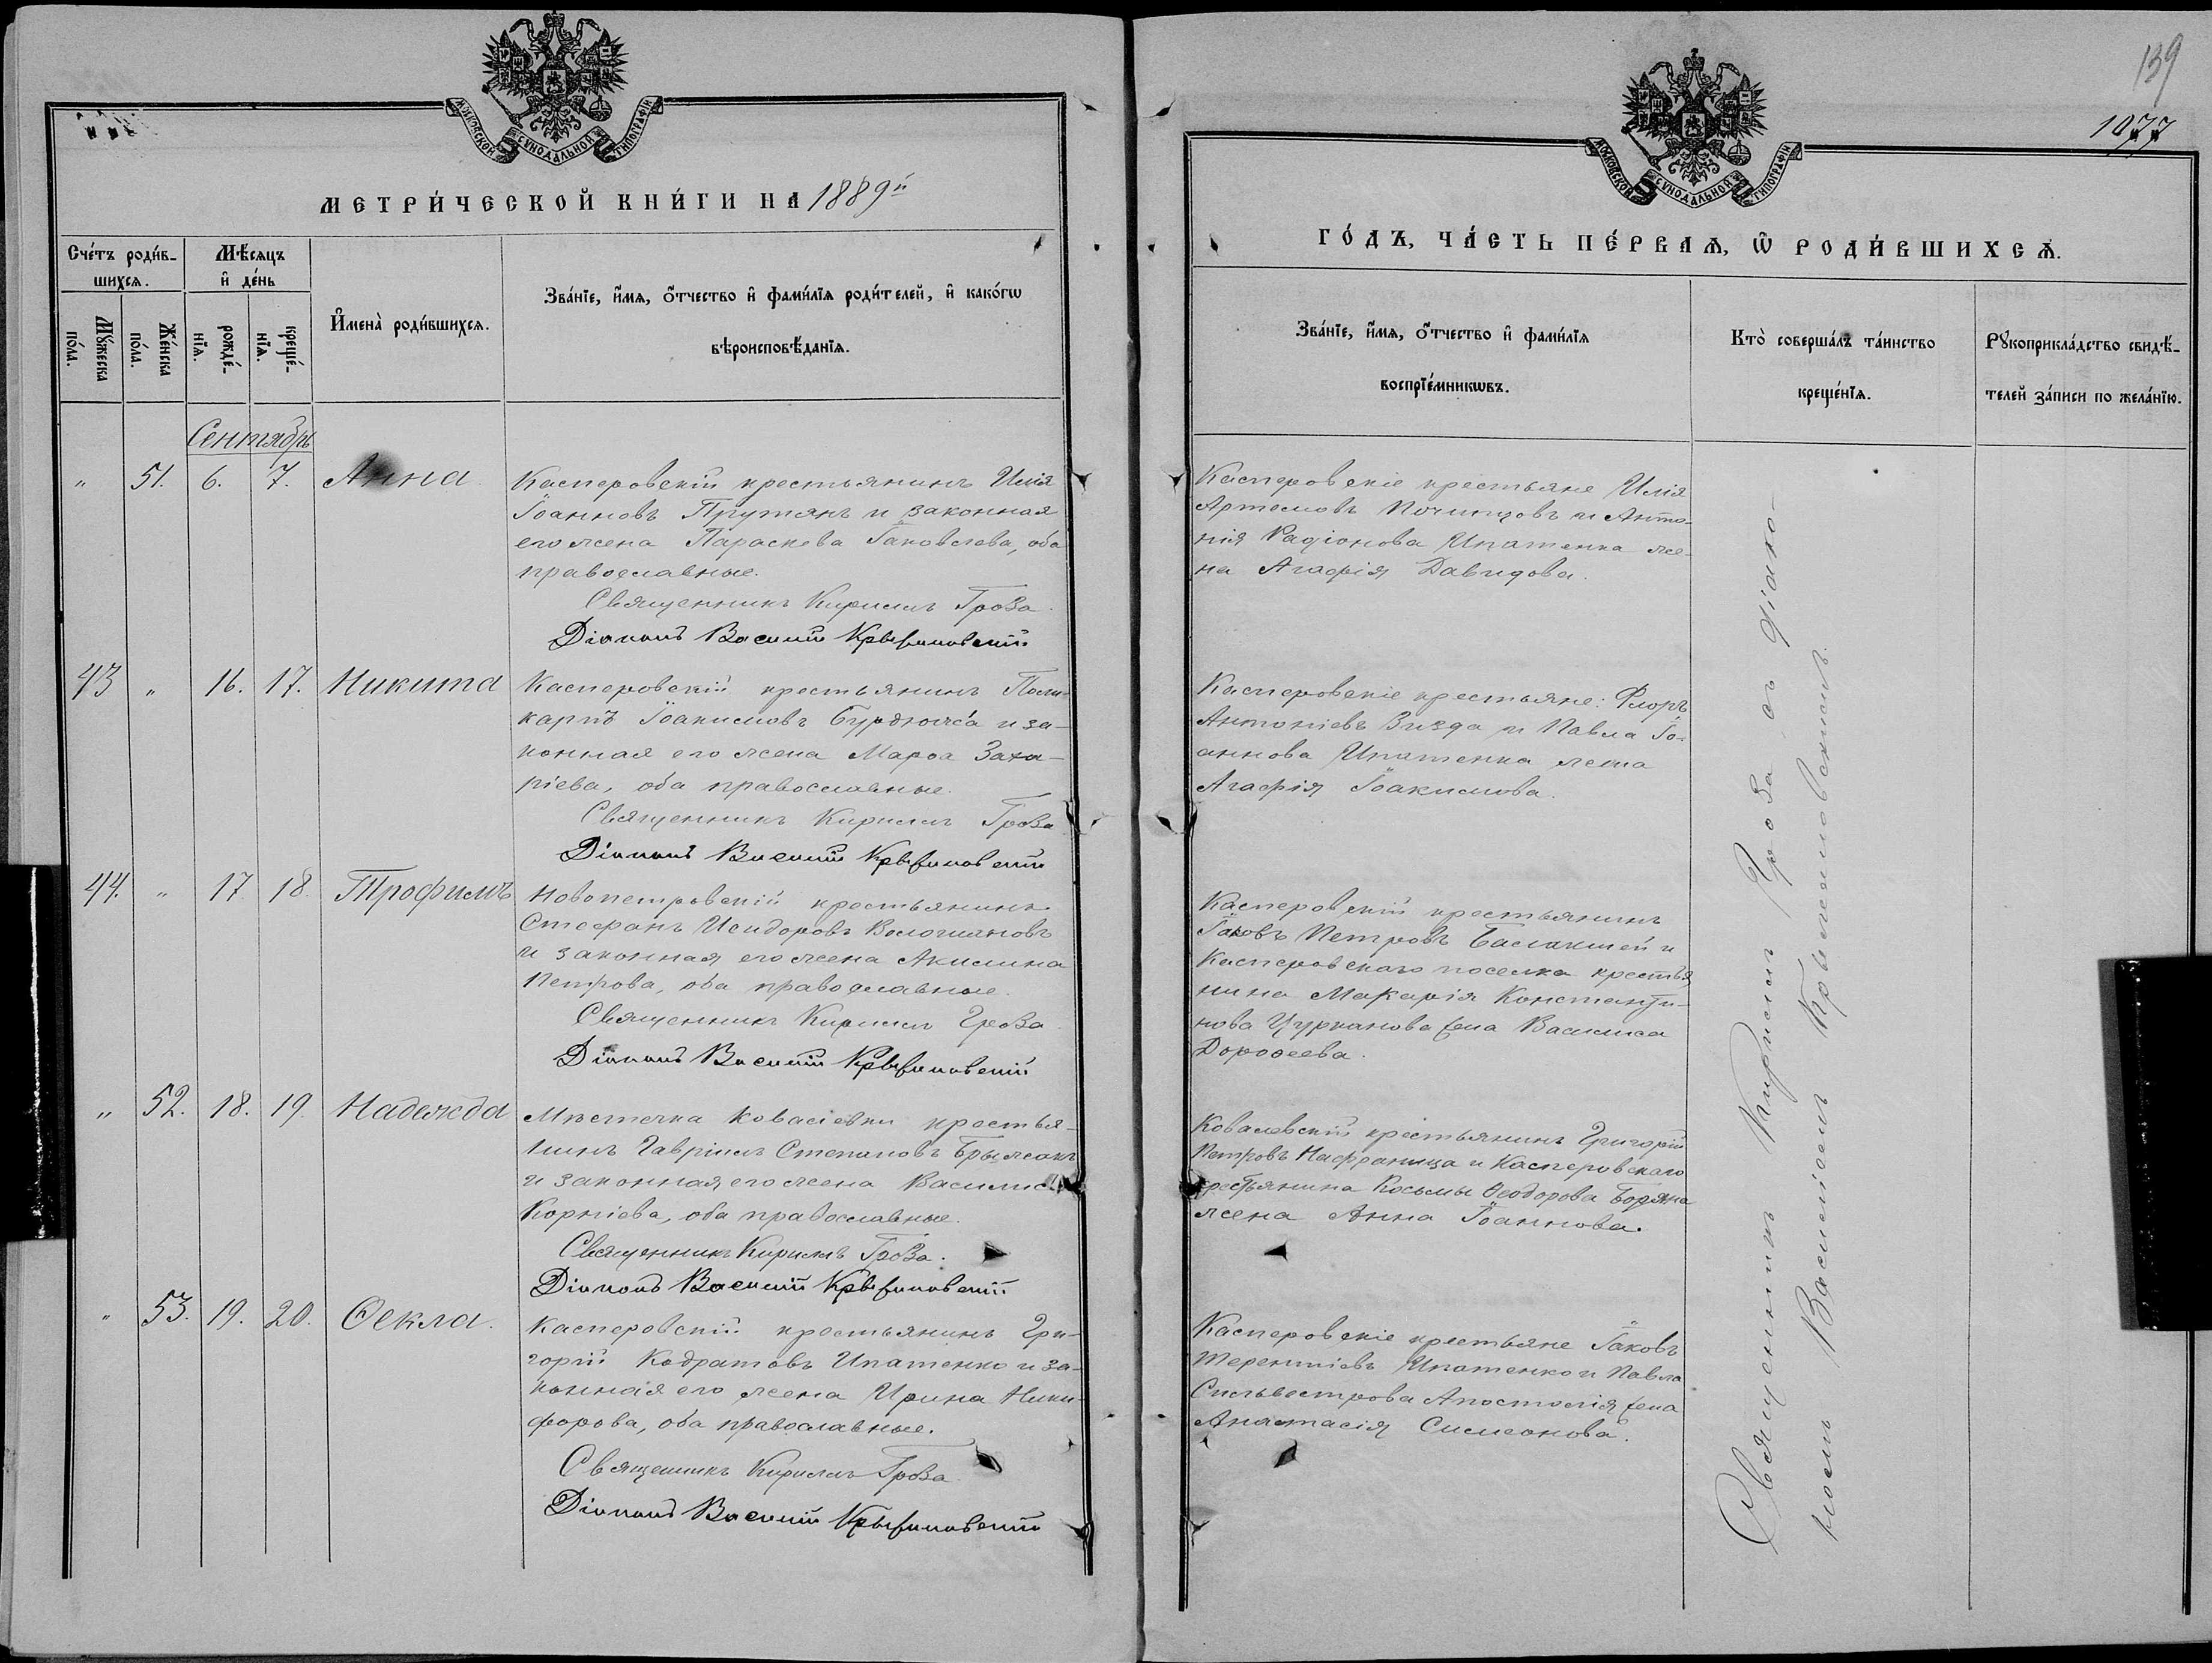 МОСКОВСКОЙ СѴНОДАЛЬНОЙ ТИПОГРАФІИ
МЕТРИ́ЧЕСКОЙ КНИ́ГИ НА 1889й
Сче́тъ роди́в-
шихсѧ.
Мѣ́сѧцъ
и҆ де́нь
Мꙋ́жеска
по́ла.
Же́нска
по́ла.
рожде́-
нїѧ.
креще́-
нїѧ.
И҆мена̀ роди́вшихсѧ.
Зва́нїе, и҆́мѧ, ѻ҆́тчество и҆ фами́лїѧ роди́телей, и҆ како́гѡ
вѣроисповѣ́данїѧ.
Сентябрь
„ 51. 6. 7. Анна
Касперовскій крестьянинъ Илія
Іоанновъ Прутянъ и законная
его жена Параскева Іаковлева, оба
православные.
Священникъ Кириллъ Гроза.
Діаконъ Василій
43 „ 16. 17. Никита
Касперовскій крестьянинъ Поли-
карпъ Іоакимовъ Бурдюжа и за-
конная его жена Марѳа Заха-
ріева, оба православные.
Священникъ Кириллъ Гроза
Діаконъ Василій
44. „ 17 18. Трофимъ
Новопетровскій крестьянинъ
Стефанъ Исидоровъ Волошановъ
и законная его жена Акилина
Петрова, оба православные.
Священникъ Кириллъ Гроза
Діаконъ Василій
„ 52. 18. 19. Надежда
Мѣстечка Ковалевки крестья-
нинъ Гавріилъ Степановъ
и законная его жена Василиса
Корніева, оба православные.
Священникъ Кириллъ Гроза.
Діаконъ Василій
„ 53. 19. 20. Ѳекла.
Касперовскій крестьянинъ Гри-
горій Кодратовъ Ипатенко и за-
конная его жена Ирина Ники-
форова, оба православные.
Священникъ Кириллъ Гроза
Діаконъ Василій
139
1077
МОСКОВСКОЙ СѴНОДАЛЬНОЙ ТИПОГРАФІИ
ГО́ДЪ, ЧА́СТЬ ПЕ́РВАѦ, Ѡ҆ РОДИ́ВШИХСѦ.
Зва́нїе, и҆́мѧ, ѻ҆́тчество и҆ фами́лїѧ
воспрїе́мникѡвъ.
Кто̀ соверша́лъ та́инство
креще́нїѧ.
Рꙋкоприкла́дство свидѣ́-
телей за́писи по жела́нїю.
Касперовскіе крестьяне Илія
Артемовъ Починцовъ и Анто-
нія Радіонова Ипатенка же-
на Агафія Давидова.
Касперовскіе крестьяне: Флоръ
Антоніевъ Визда и Павла Іо-
аннова Ипатенка жена
Агафія Іоакимова.
Касперовскій крестьянинъ
Іаковъ Петровъ и
Касперовскаго поселка крестья
нина Макарія Константи-
нова Цурканова жена Василиса
Дороѳеева.
Ковалевскій крестьянинъ Григорій
Петровъ и Касперовскаго
крестьянина Косьмы Ѳеодорова
жена Анна Іоаннова.
Касперовскіе крестьяне Іаковъ
Терентіевъ Ипатенко и Павла
Сильвестрова Апостолія жена
Анастасія Симеонова.
Священникъ Кириллъ Гроза съ діако-
номъ Василіемъ